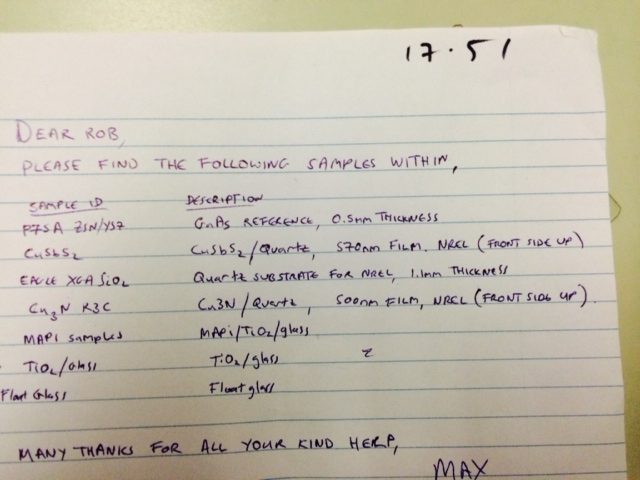 17.51
DEAR ROB,
PLEASE FIND THE FOLLOWING SAMPLES WITHIN,
SAMPLE ID DESCRIPTION
GaAs REFERENCE, 0.5mm THICKNESS
CuSbS2 CuSbS2/Quartz, 570nm FILM, NREL (FRONT SIDE UP)
EAGLE XGA SiO2 Quartz SUBSTRATE FOR NREL, 1.1mm THICKNESS
Cu3N R3C Cu3N/Quartz, 500nm FILM, NREL (FRONT SIDE UP).
MAPI samples MAPi/TiO2/glass
TiO2/Glass TiO2/glass
Float Glass Float glass
MANY THANKS FOR ALL YOUR KIND HELP,
MAX